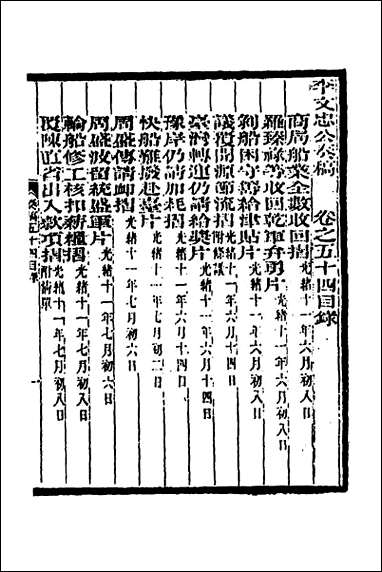 李文忠公奏稿 卷之五十四目錄
商局船業全數收回摺 光緒十一年六月初八日
羅臻祿等收回乾軍弁勇片 光緒十一年六月初八日
剝船困苦籌給津貼片 光緒十一年六月初八日
議覆開源節流摺 附條議 光緒十一年六月十四日
臺灣轉運仍請給獎片 光緒十一年六月十四日
豫岸仍請加耗摺 光緒十一年六月十四日
快船難撥赴臺片 光緒十一年七月初二日
周盛傳請卹摺 光緒十一年七月初六日
周盛波留統盛軍片 光緒十一年七月初六日
輪船修工核扣薪糧摺 光緒十一年七月初八日
覆陳直省出入款項摺 附清單 光緒十一年七月初八日
奏稿五十四目錄
一